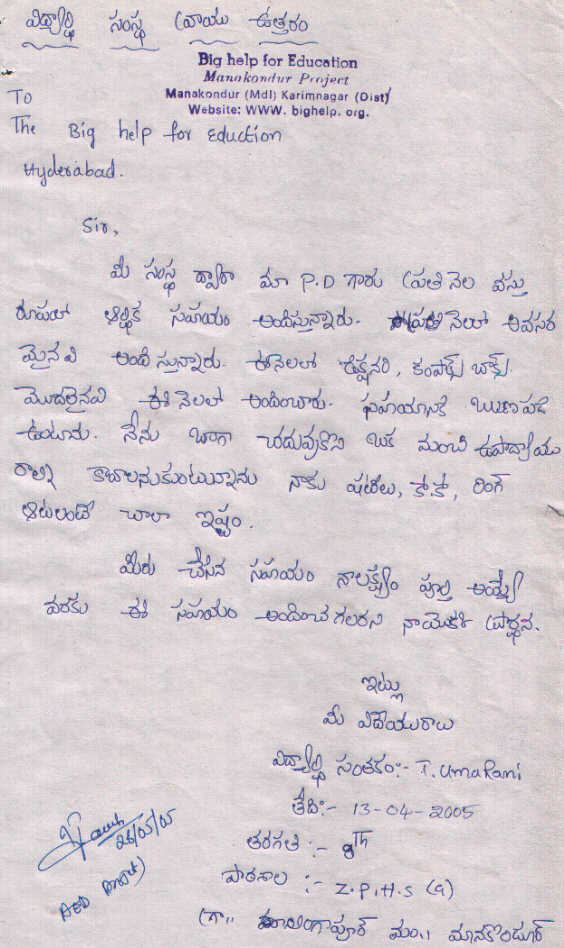 విద్యార్థి సంస్థ వ్రాయు ఉత్తరం
Big help for Education
Manakondur Project
Manakondur (Mdl) Karimnagar (Dist)
Website: WWW. bighelp. org.
To
The Big help for Eduction
Hyderabad.
Sir,
మీ సంస్థ ద్వారా మా P.D గారు ప్రతి నెల వస్తు
రూపంలో ఆర్థిక సహయం అందిస్తున్నారు. ప్రతి నెలలో అవసర
మైనవి అందిస్తున్నారు. ఈనెలలో డిక్షనరి, కంపాక్స్ బాక్స్
మొదలైనవి ఈ నెలలో అందించారు. సహయానికి ఋణపడి
ఉంటాను. నేను బాగా చదువుకొని ఒక మంచి ఉపాద్యాయు
రాల్ని కావాలనుకుంటున్నాను నాకు షటిలు, కో.కో, రింగ్
ఆటలంటే చాలా ఇష్టం.
మీరు చేసిన సహయం నాలక్ష్యం పూర్తి అయ్యే
వరకు ఈ సహయం అందించ గలరని నాయొక్క ప్రార్థన.
ఇట్లు
మీ విదేయురాలు
విద్యార్థి సంతకం:- T. UmaRani
తేది:- 13-04-2005
తరగతి :- 8th
పాఠశాల :- Z.P.H.S (G)
గ్రా,, మం,, మానకొండూర్
26/05/05